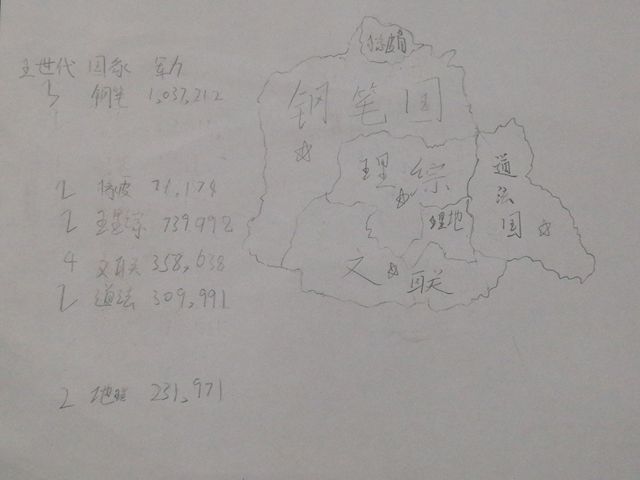 王世代 国家 军力
5 钢笔 1,037,212
2 橡皮 71,174
2 理综 739,992
4 文联 358,638
2 道法 309,991
2 地理 231,971
橡皮
钢笔国
理综
道法国
理地
文联